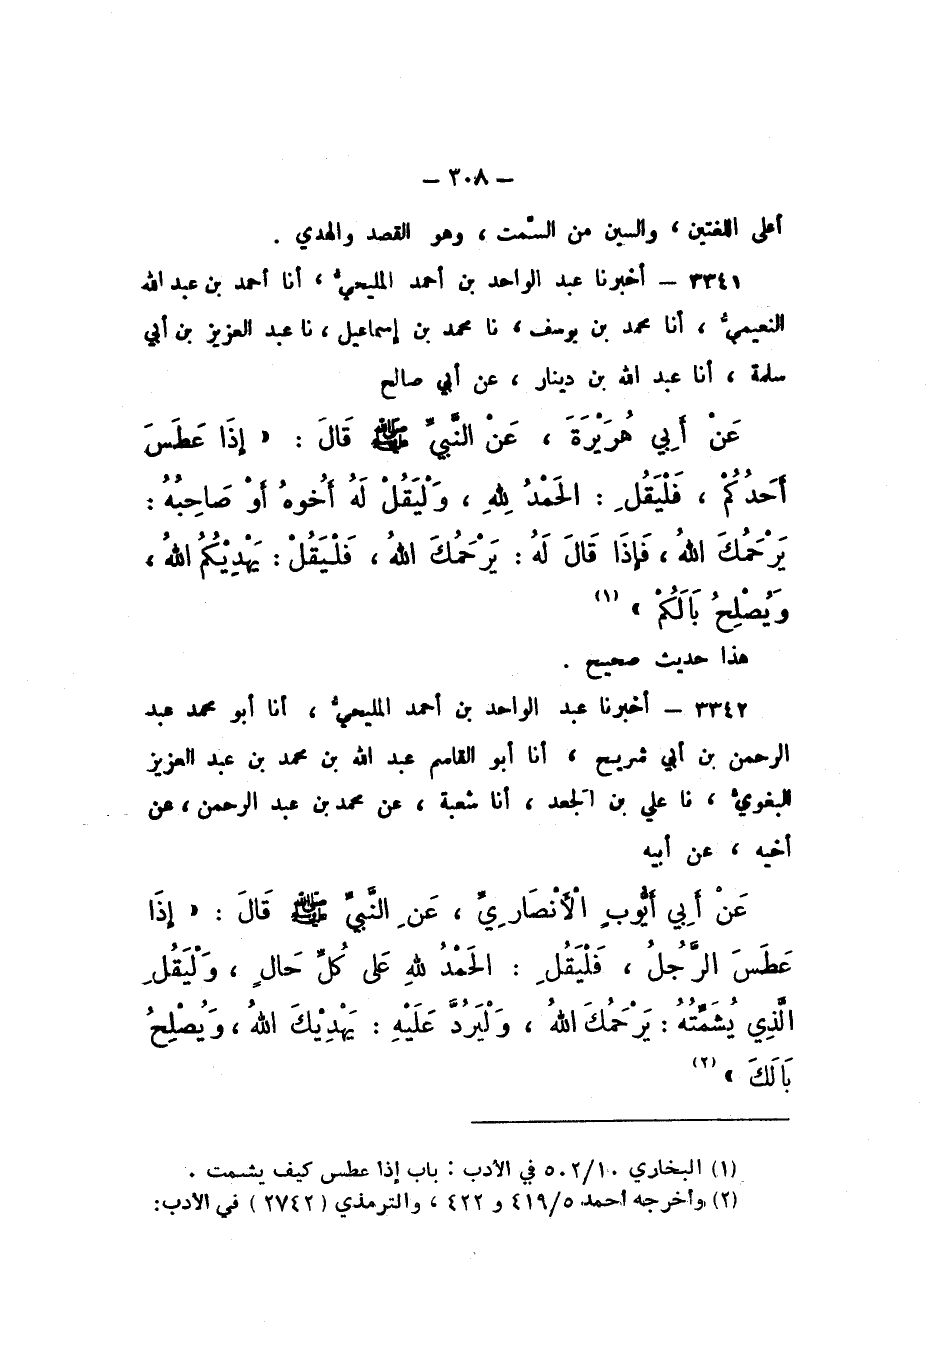 – ٣٠٨ –
أعلى اللغتين ، والسين من السَّمت ، وهو القصد والهدي .
٣٣٤١ – أخبرنا عبد الواحد بن أحمد المليحيُّ ، أنا أحمد بن عبد الله
النعيميُّ ، أنا محمد بن يوسف ، نا محمد بن إسماعيل ، نا عبد العزيز بن أبي
سلمة ، أنا عبد الله بن دينار ، عن أبي صالح
عَنْ أَبِي هُرَيْرَةَ ، عَنْ النَّبِيِّ ﷺ قَالَ : « إِذَا عَطَسَ
أَحَدُكُمْ ، فَلْيَقُلِ : الحَمْدُ لِلهِ ، وَلْيَقُلْ لَهُ أَخُوهُ أَوْ صَاحِبُهُ :
يَرْحَمُكَ اللهُ ، فَإِذَا قَالَ لَهُ : يَرْحَمُكَ اللهُ ، فَلْيَقُلْ : يَهْدِيْكُمُ اللهُ ،
وَيُصْلِحُ بَالَكُمْ » (١)
هذا حديث صحيح .
٣٣٤٢ – أخبرنا عبد الواحد بن أحمد المليحيُّ ، أنا أبو محمد عبد
الرحمن بن أبي شريح ، أنا أبو القاسم عبد الله بن محمد بن عبد العزيز
البغويُّ ، نا علي بن الجعد ، أنا شعبة ، عن محمد بن عبد الرحمن ، عن
أخيه ، عن أبيه
عَنْ أَبِي أَيُّوبٍ الْأَنْصَارِيِّ ، عَنِ النَّبِيِّ ﷺ قَالَ : « إِذَا
عَطَسَ الرَّجُلُ ، فَلْيَقُلِ : الحَمْدُ لِلهِ عَلَى كُلِّ حَالٍ ، وَلْيَقُلِ
الَّذِي يُشَمِّتُهُ : يَرْحَمُكَ اللهُ ، وَلْيَرُدَّ عَلَيْهِ : يَهْدِيْكَ اللهُ ، وَيُصْلِحُ
بَالَكَ » (٢)
(١) البخاري ٥٠٢/١٠ في الأدب : باب إذا عطس كيف يشمت .
(٢) وأخرجه أحمد ٤١٩/٥ و ٤٢٢ ، والترمذي ( ٢٧٤٢ ) في الأدب: